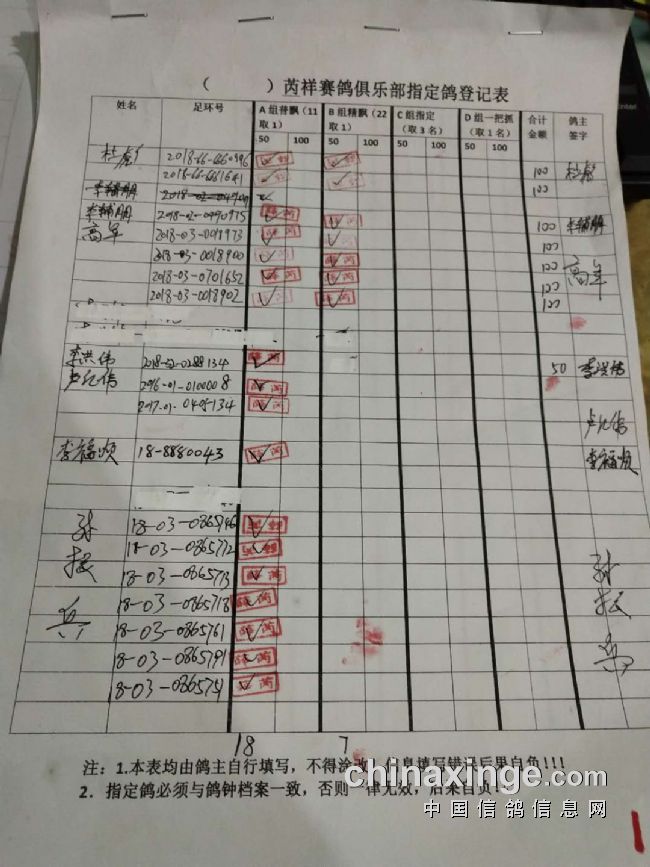 （ ）芮祥赛鸽俱乐部指定鸽登记表
姓名 足环号 A组普飘（11取1） B组精飘（22取1） C组指定（取3名） D组一把抓（取1名） 合计金额 鸽主签字
50 100 50 100 50 100 50 100
2018-66-660996 100
2018-66-661641 100
李辅朋
李辅朋 2018-02-0990975 100 李辅朋
高军 2018-03-0018973 100 高军
2018-03-0018900 100
2018-03-0701652 100
2018-03-0018902 100
李洪伟 2018-02-0288134 50 李洪伟
2016-01-0100008
2017-01-0405134
李福顺 18-8880043 李福顺
孙振兵 18-03-0865746 孙振兵
18-03-0865772
18-03-0865773
18-03-0865718
18-03-0865761
18-03-0865791
18-03-0865751
18 7
注：1.本表均由鸽主自行填写，不得涂改，信息填写错记后果自负!!!
2．指定鸽必须与鸽钟档案一致，否则一律无效，后果自负!
chinaxinge.com
中国信鸽信息网